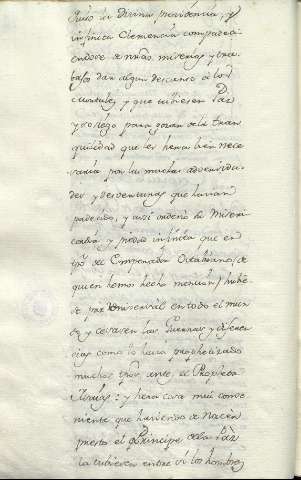 quiso su Divina providencia, y
infinita Clemencia compadeci-
endose de nrãs miserias y tra-
bajos dar algun descanso a los
mortales, y que tubiesen Paz
y sosiego para gozar de la tran
quilidad que les hera bien nece
saria por las muchas adversida-
des y desventuras que havian
padecido, y assi ordeno su Miseri
cordia y piedad infinita que en
tpõ del Emperador Octaviano, de
quien hemos hecho mencion, hubie
se paz vniversal en todo el mun
do, y cesasen las Guerras y discor
dias como lo havia prophetizado
muchos años antes el Propheta
Isaias: y hera cosa mui combe
niente que haviendo de nacer
presto el Principe de la Paz
la tubiesen entre si los hombres